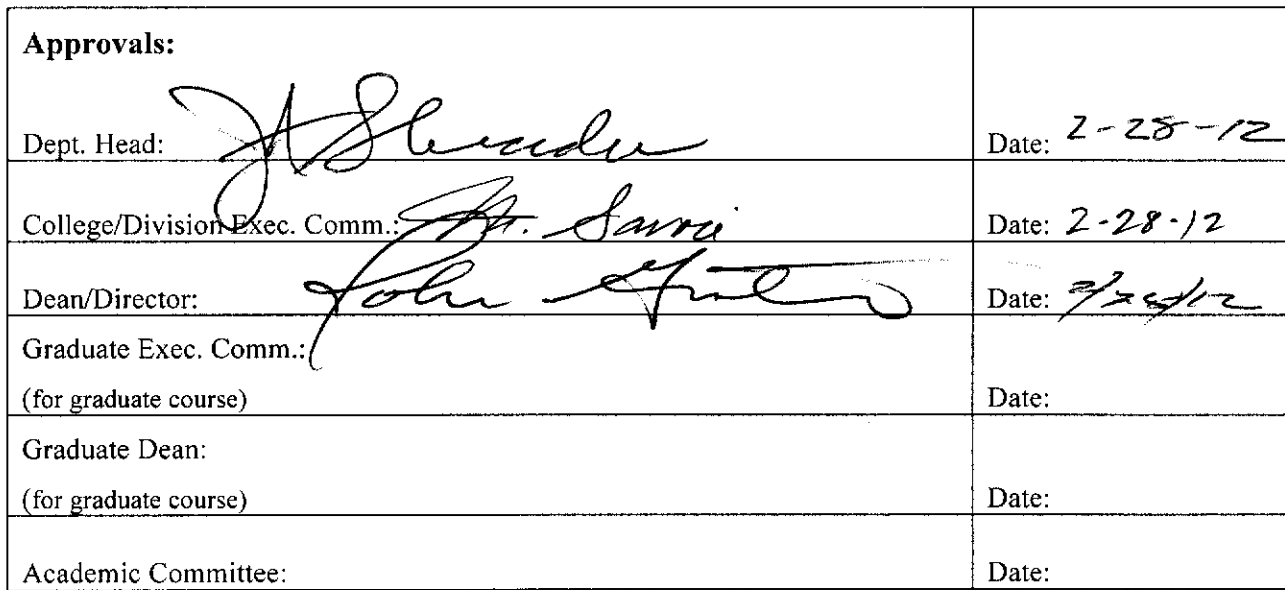 Approvals:
Dept. Head: Date: 2-28-12
College/Division Exec. Comm.: Date: 2-28-12
Dean/Director: John Date:
Graduate Exec. Comm.:
(for graduate course) Date:
Graduate Dean:
(for graduate course) Date:
Academic Committee: Date: